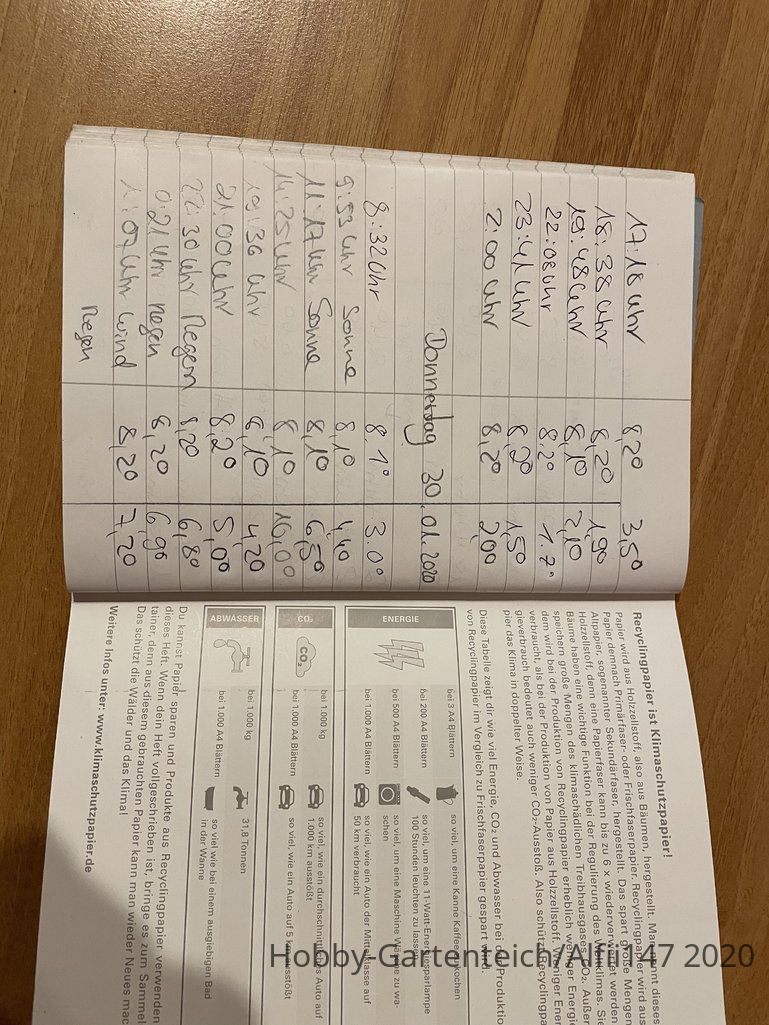 17:18 Uhr 8,2° 3,5°
18:38 Uhr 8,2° 1,9°
19:48 Uhr 8,1° 2,1°
22:08 Uhr 8,2° 1,7°
23:41 Uhr 8,2° 1,5°
2:00 Uhr 8,2° 2,0°
Donnerstag 30.01.2020
8:32 Uhr 8,1° 3,0°
9:53 Uhr Sonne 8,1° 4,4°
11:17 Uhr Sonne 8,1° 6,5°
14:25 Uhr 8,1° 10,0°
19:36 Uhr 8,1° 4,2°
21:00 Uhr 8,2° 5,0°
22:30 Uhr Regen 8,2° 6,8°
0:21 Uhr Regen 8,2° 6,9°
1:07 Uhr Wind 8,2° 7,2°
Regen
Recyclingpapier ist Klimaschutzpapier!
Papier wird aus Holzzellstoff, also aus Bäumen, hergestellt. Man nennt dieses
Papier demnach Primärfaser- oder Frischfaserpapier. Recyclingpapier wird aus
Altpapier, sogenannter Sekundärfaser, hergestellt. Das spart große Mengen
Holzzellstoff, denn eine Papierfaser kann bis zu 6 x wiederverwertet werden.
Bäume haben eine wichtige Funktion bei der Regulierung des Weltklimas. Sie
speichern große Mengen des klimaschädlichen Treibhausgases CO₂. Außer
dem wird bei der Produktion von Recyclingpapier erheblich weniger Energie
verbraucht, als bei der Produktion von Papier aus Holzzellstoff. Weniger Ener
gieverbrauch bedeutet auch weniger CO₂-Ausstoß. Also schützt Recyclingpa
pier das Klima in doppelter Weise.
Diese Tabelle zeigt dir wie viel Energie, CO₂ und Abwasser bei der Produktio
von Recyclingpapier im Vergleich zu Frischfaserpapier gespart wird.
ENERGIE
bei 3 A4 Blättern so viel, um eine Kanne Kaffee zu kochen
bei 200 A4 Blättern so viel, um eine 11-Watt-Energiesparlampe
100 Stunden leuchten zu lassen
bei 500 A4 Blättern so viel, um eine Maschine Wäsche zu wa-
schen
bei 1.000 A4 Blättern so viel, wie ein Auto der Mittelklasse auf
50 km verbraucht
CO₂
CO₂
bei 1.000 kg so viel, wie ein durchschnittliches Auto auf
1.000 km ausstößt
bei 1.000 A4 Blättern so viel, wie ein Auto auf 5 km ausstößt
ABWASSER
bei 1.000 kg 31,8 Tonnen
bei 1.000 A4 Blättern so viel wie bei einem ausgiebigen Bad
in der Wanne
Du kannst Papier sparen und Produkte aus Recyclingpapier verwenden
dieses Heft. Wenn dein Heft vollgeschrieben ist, bringe es zum Sammel
tainer, denn aus diesem gebrauchten Papier kann man wieder Neues mac
Das schützt die Wälder und das Klima!
Weitere Infos unter: www.klimaschutzpapier.de
Hobby-Gartenteich/Alfii147 2020